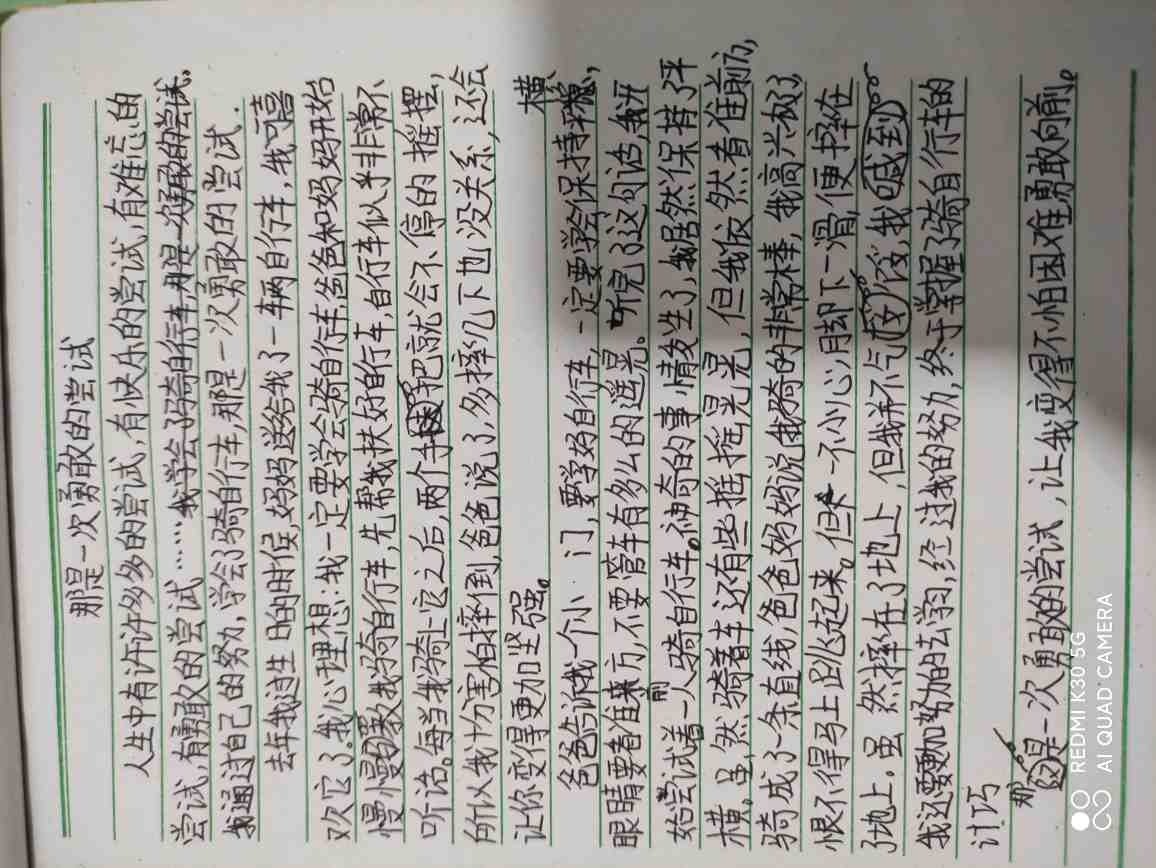 那是一次勇敢的尝试
人生中有许许多多的尝试,有快乐的尝试,有难忘的
尝试,有勇敢的尝试……我学会了骑自行车,那是一次勇敢的尝试。
我通过自己的努力,学会了骑自行车,那是一次勇敢的尝试.
去年我过生日的时候,妈妈送给我了一车两自行车,我可喜
欢它了.我心理想:我一定要学会骑自行车,爸爸和妈妈开始
慢慢教我骑自行车,先帮我扶好自行车,自行车似乎非常不
听话。每当我骑上它之后,两个手把就会不停的摇摆,
所以我十分害怕摔倒,爸爸说了,多摔几下也没关系,还会
让你变得更加坚强。
横
爸爸告诉我一个小门,要学好自行车,一定要学会保持
眼睛要看住前方,不要管车有多么的遥晃。听见了这句话,我开
始尝试着一人骑自行车。神奇的事情发生了,我居然保持了平
横。虽然骑着车还有些摇摇晃晃,但我依然看准前方,
骑成了一条直线,爸爸妈妈说我骑的非常棒,我高兴极了,
恨不得马上跳起来。但一不小心,脚下一滑,便摔在
了地上.虽然摔在了地上,但我并不气,我喊到
我还要加努力的去学习,经过我的努力,终于掌握了骑自行车的
计巧
那是一次勇敢的尝试,让我变得不怕困难勇敢向前。
REDMI K30 5G
AI QUAD CAMERA